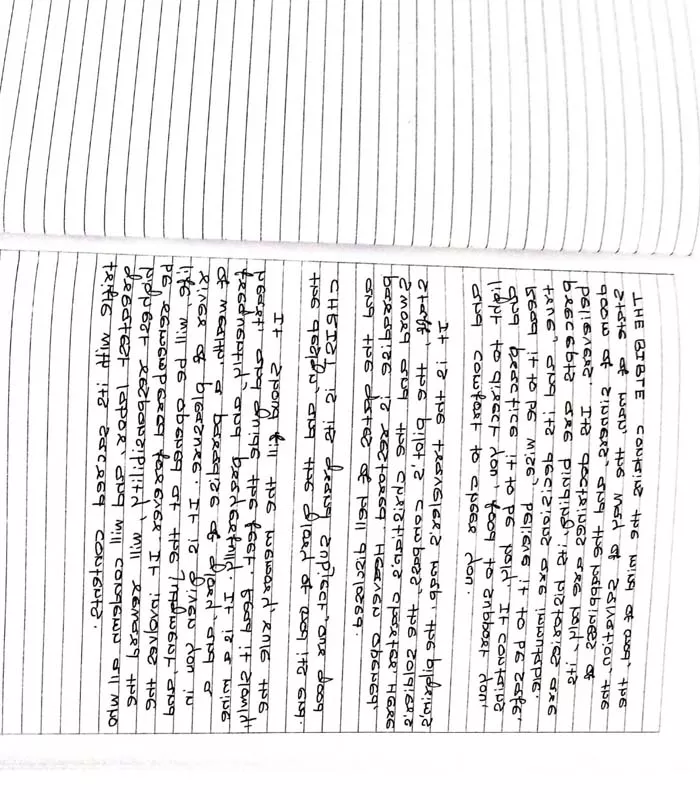 THE BIBLE contains the mind of God, the
state of man, the way of salvation, the
doom of sinners, and the happiness of
believers. Its doctrines are holy, its
precepts are binding, its histories are
true, and its decisions are immutable.
Read it to be wise, believe it to be safe,
and practice it to be holy. It contains
light to direct you, food to support you,
and comfort to cheer you.
It is the traveler's map, the pilgrim's
staff, the pilot's compass, the soldier's
sword and the christian's charter. Here
paradise is restored, Heaven opened,
and the gates of hell disclosed.
CHRIST is its grand subject, our good
the design, and the glory of God its end.
It should fill the memory, rule the
heart, and guide the feet. Read it slowly,
frequently, and prayerfully. It is a mine
of wealth, a paradise of glory, and a
river of pleasure. It is given you in
life, will be opened at the judgment, and
be remembered forever. It involves the
highest responsibility, will reward the
greatest labor, and will condemn all who
trifle with its sacred contents.